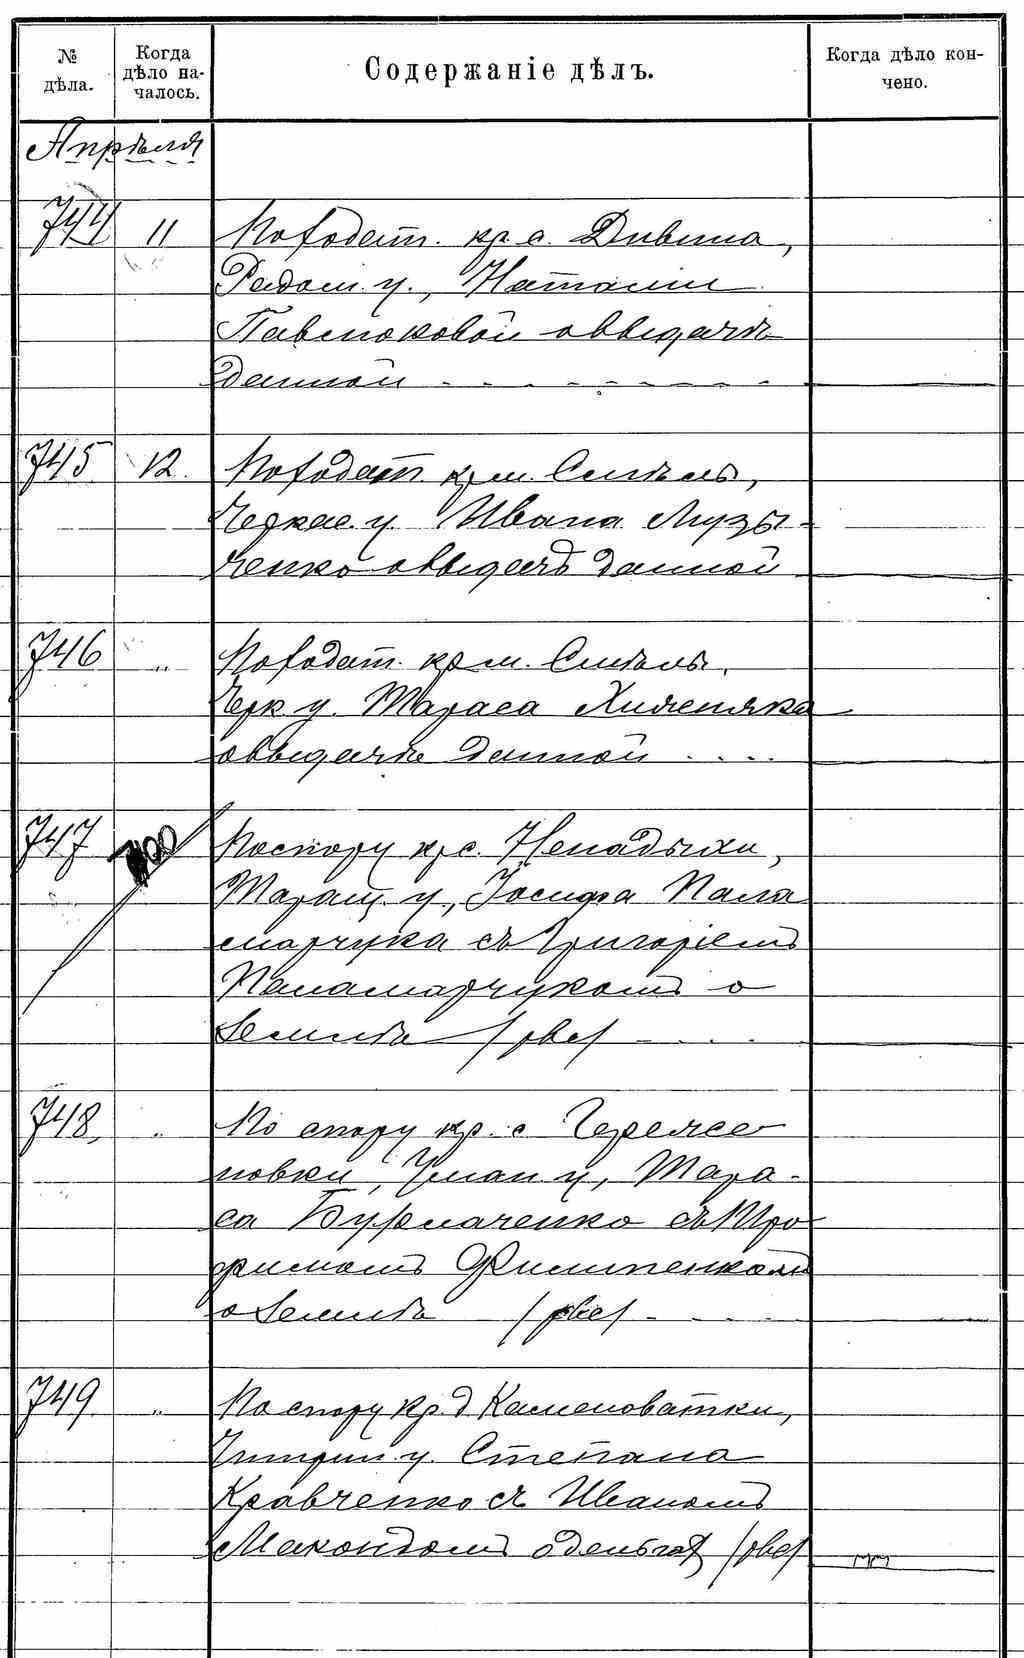 № дѣла.
Когда дѣло началось.
Содержаніе дѣлъ.
Когда дѣло кончено.
Апрѣля
744 11 По ходат. кр. с. Дивина,
Радом. у., Наталіи
Павлюковой о выдачѣ
данной
745 12. По ходат. кр. м. Смѣлы,
Черкас. у. Ивана Музы-
ченко о выдачѣ данной
746 " По ходат. кр. м. Смѣлы,
Черк. у. Тараса
о выдачѣ данной
747 По спору кр. с. Ненадыхи,
Таращ. у., Іосифа Пала
марчука съ Григоріемъ
Паламарчукомъ о
землѣ
748, " По спору кр. с.
новки, Уман. у., Тара-
са Бурлаченко съ Тро
фимомъ Филипенкомъ
о землѣ
749. " По спору кр. д. Каменоватки,
Чигрин. у. Степана
Кравченко съ Иваномъ
о деньгах